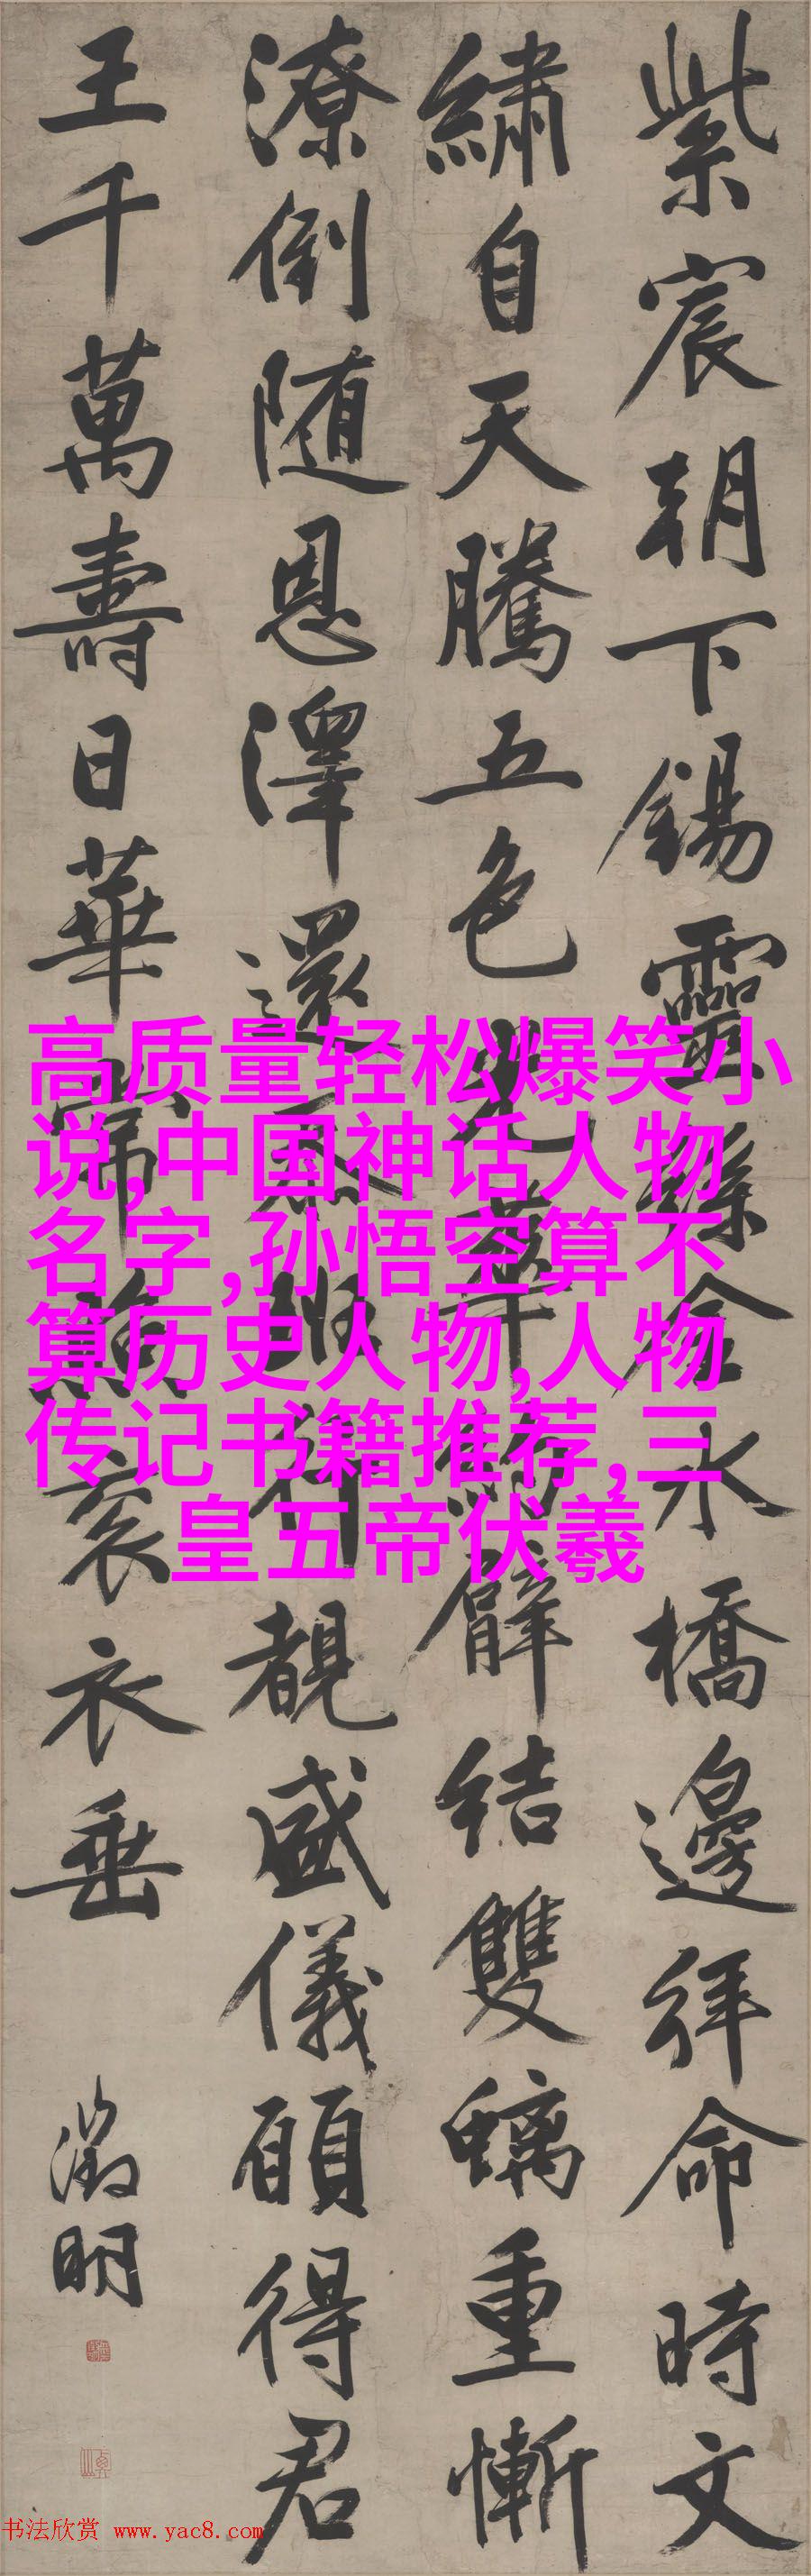 紫宸朝下錫靈絲金水橋邊拜命時文
繡自天騰五色光華約臂結雙螭重慚
潦倒随恩澤還忝班行覩盛儀願得君
王千萬壽日華袞衣垂
徵明
高质量轻松爆笑小
说,中国神话人物
名字,孙悟空算不
算历史人物,人物
传记书籍推荐,三
皇五帝伏羲
书法欣赏 www.yac8.com